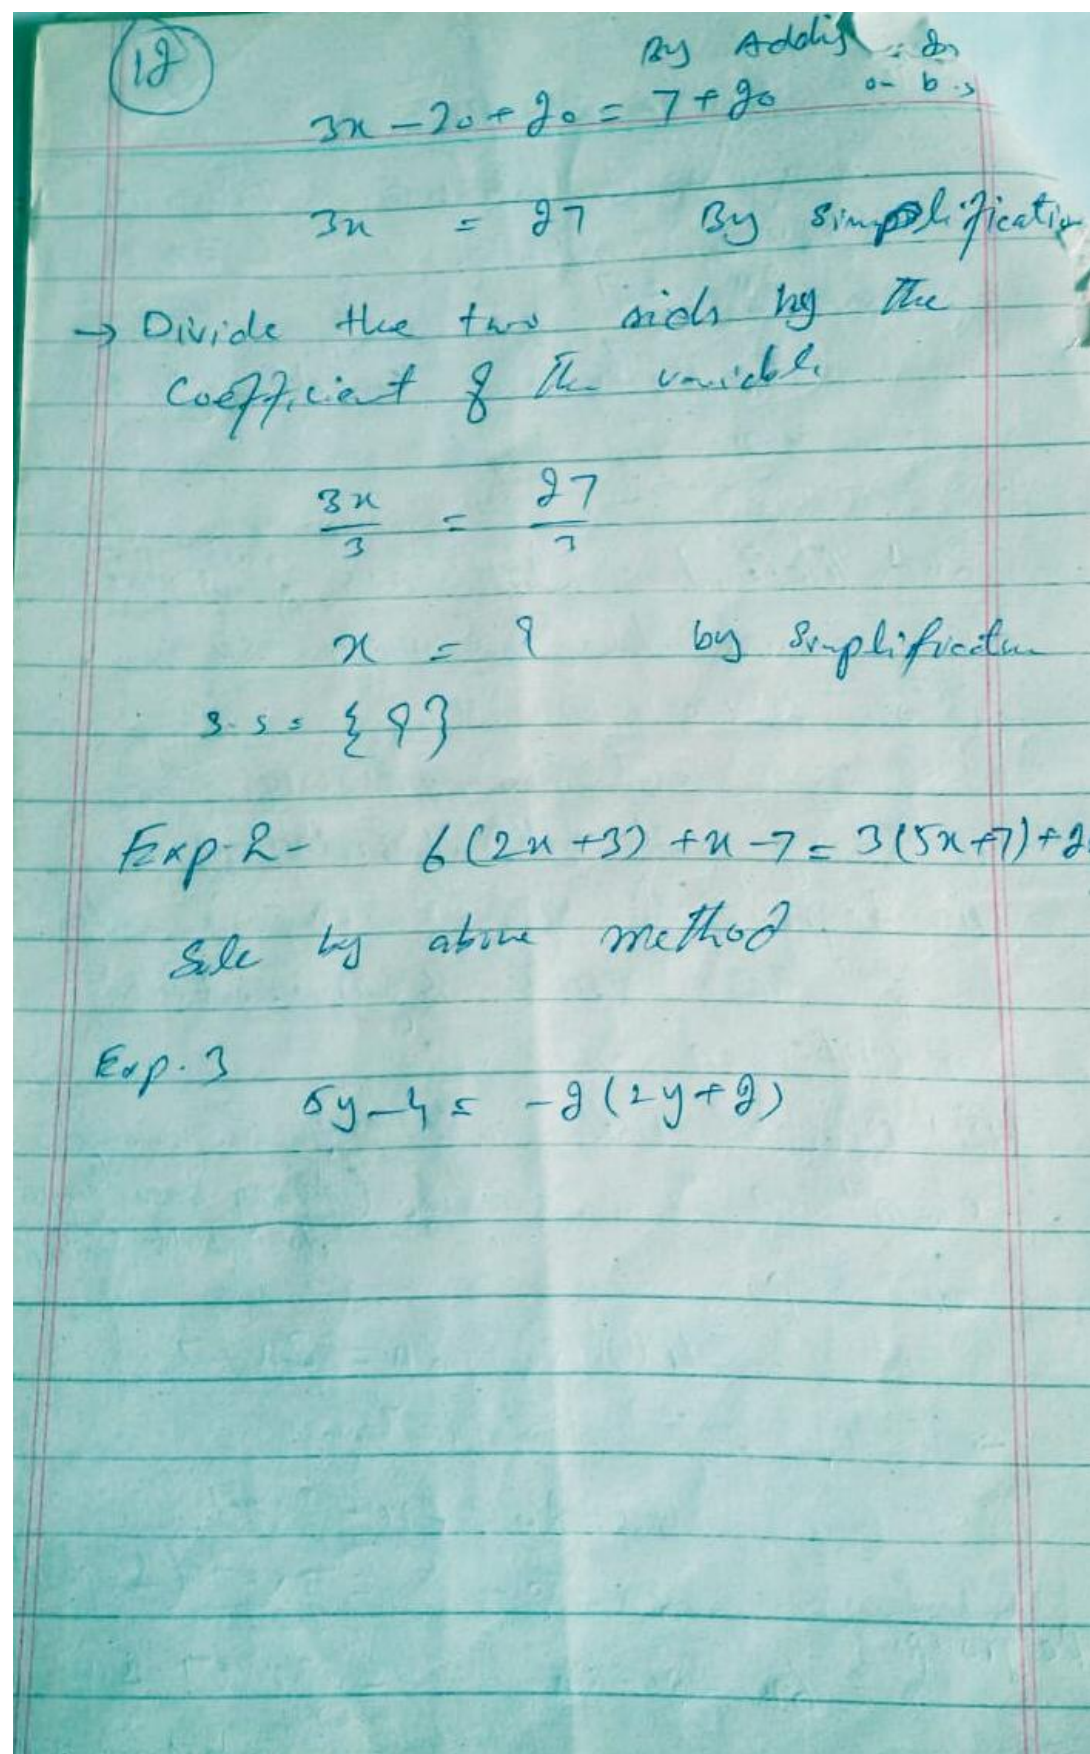 12
By Adding 20
on b.s
3x - 20 + 20 = 7 + 20
3x = 27 By Simplification
→ Divide the two sids by the
Coefficient of the variable
3x/3 = 27/3
x = 9 by Simplification
s.s = {9}
Exp-2- 6(2x+3) + x - 7 = 3(5x+7) + 2
Sole by above method
Exp. 3
5y - 4 = -2(2y+2)